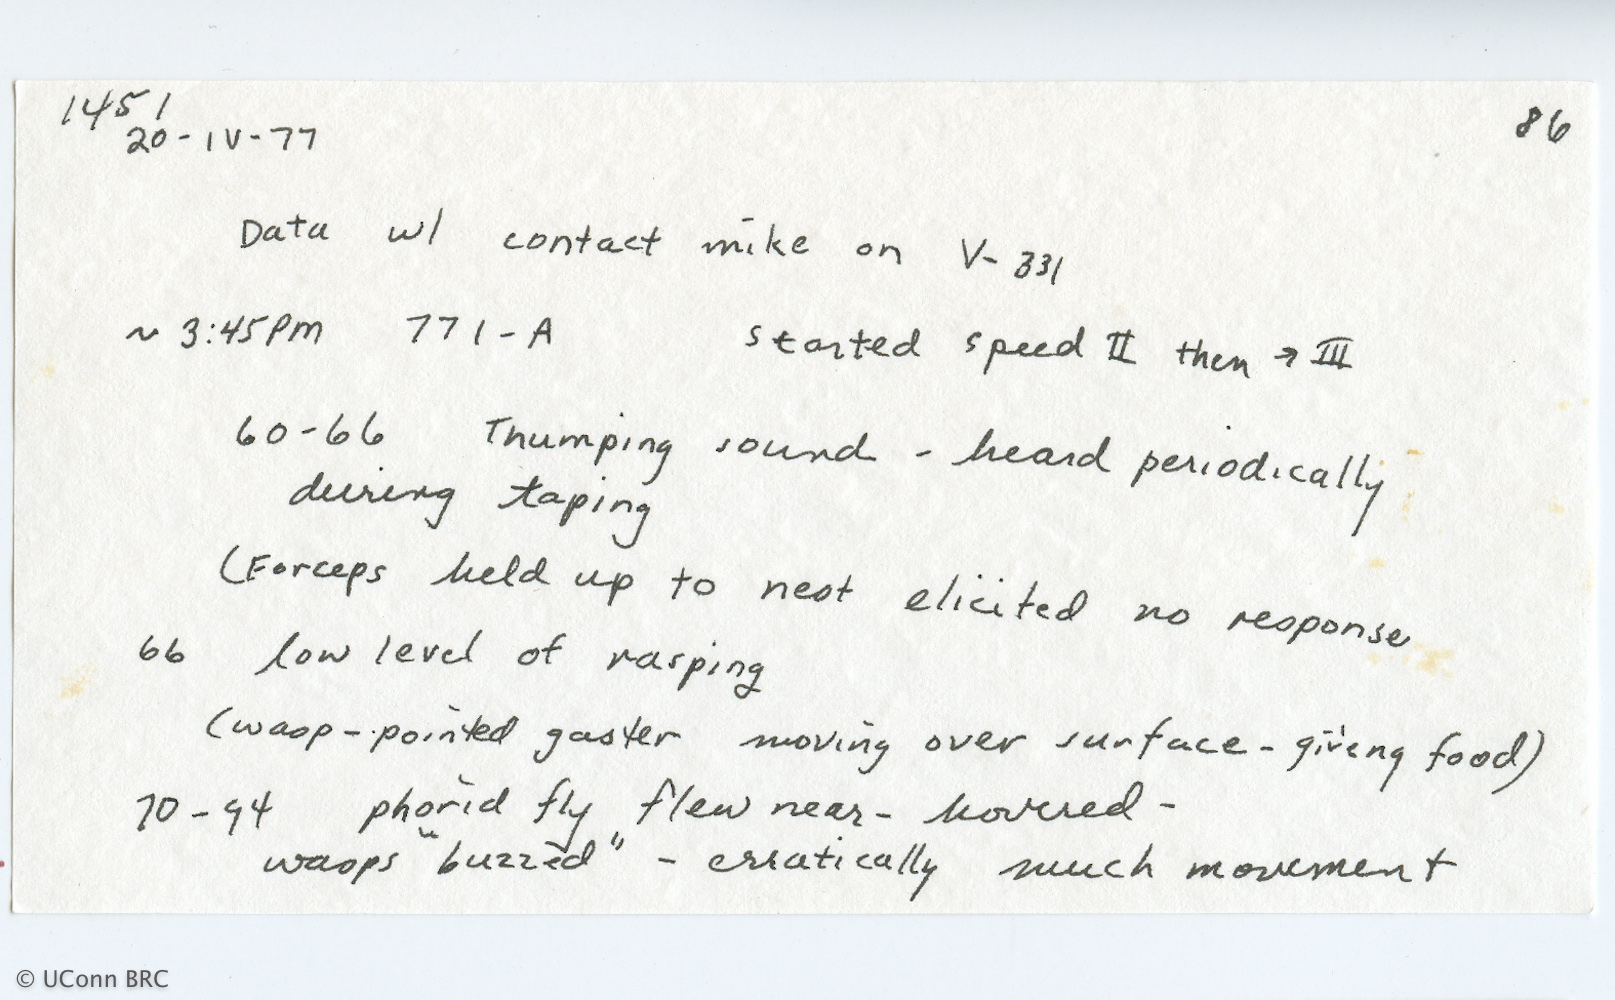 1451
86
20-IV-77
Data w/ contact mike on V-331
~ 3:45PM 771-A started speed II then → III
60-66 Thumping sound - heard periodically
during taping
(Forceps held up to nest elicited no response
66 low level of rasping
(wasp-pointed gaster moving over surface - giving food)
70-94 phorid fly flew near - hovered -
wasps "buzzed" - erratically much movement
© UConn BRC